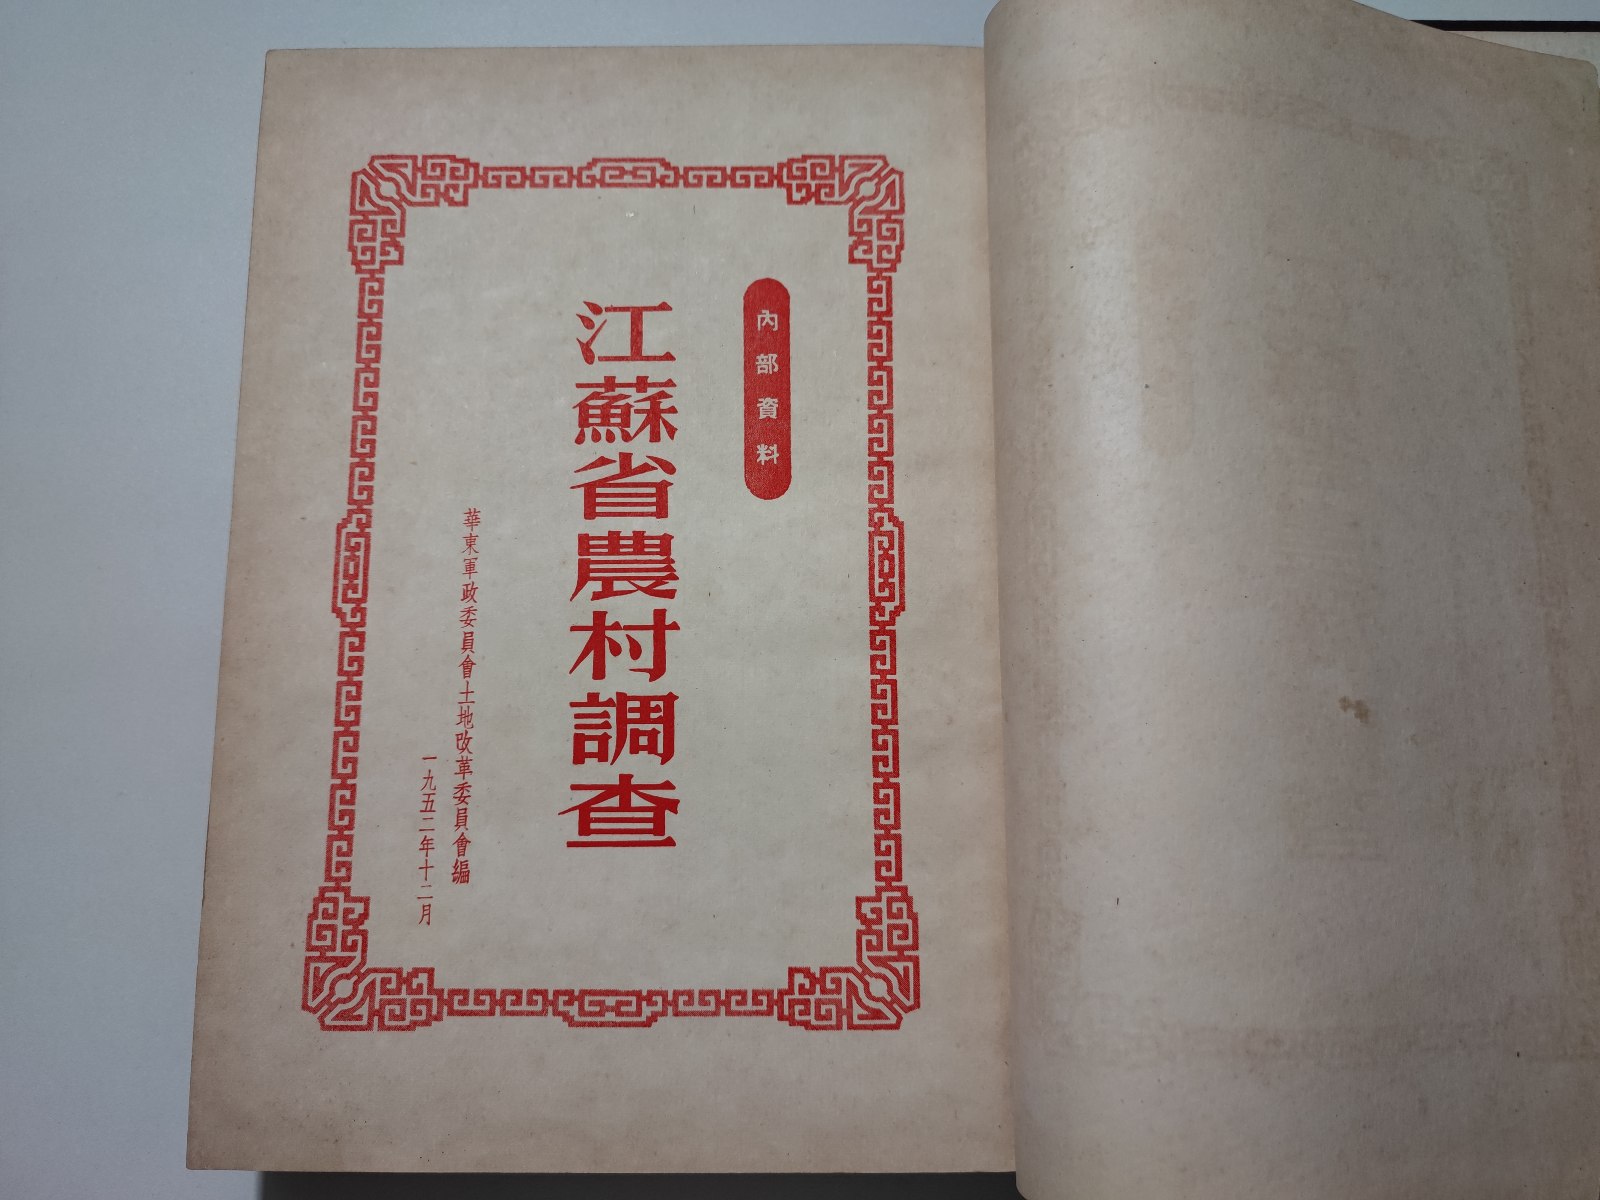 內部資料
江蘇省農村調查
華東軍政委員會土地改革委員會編
一九五二年十二月